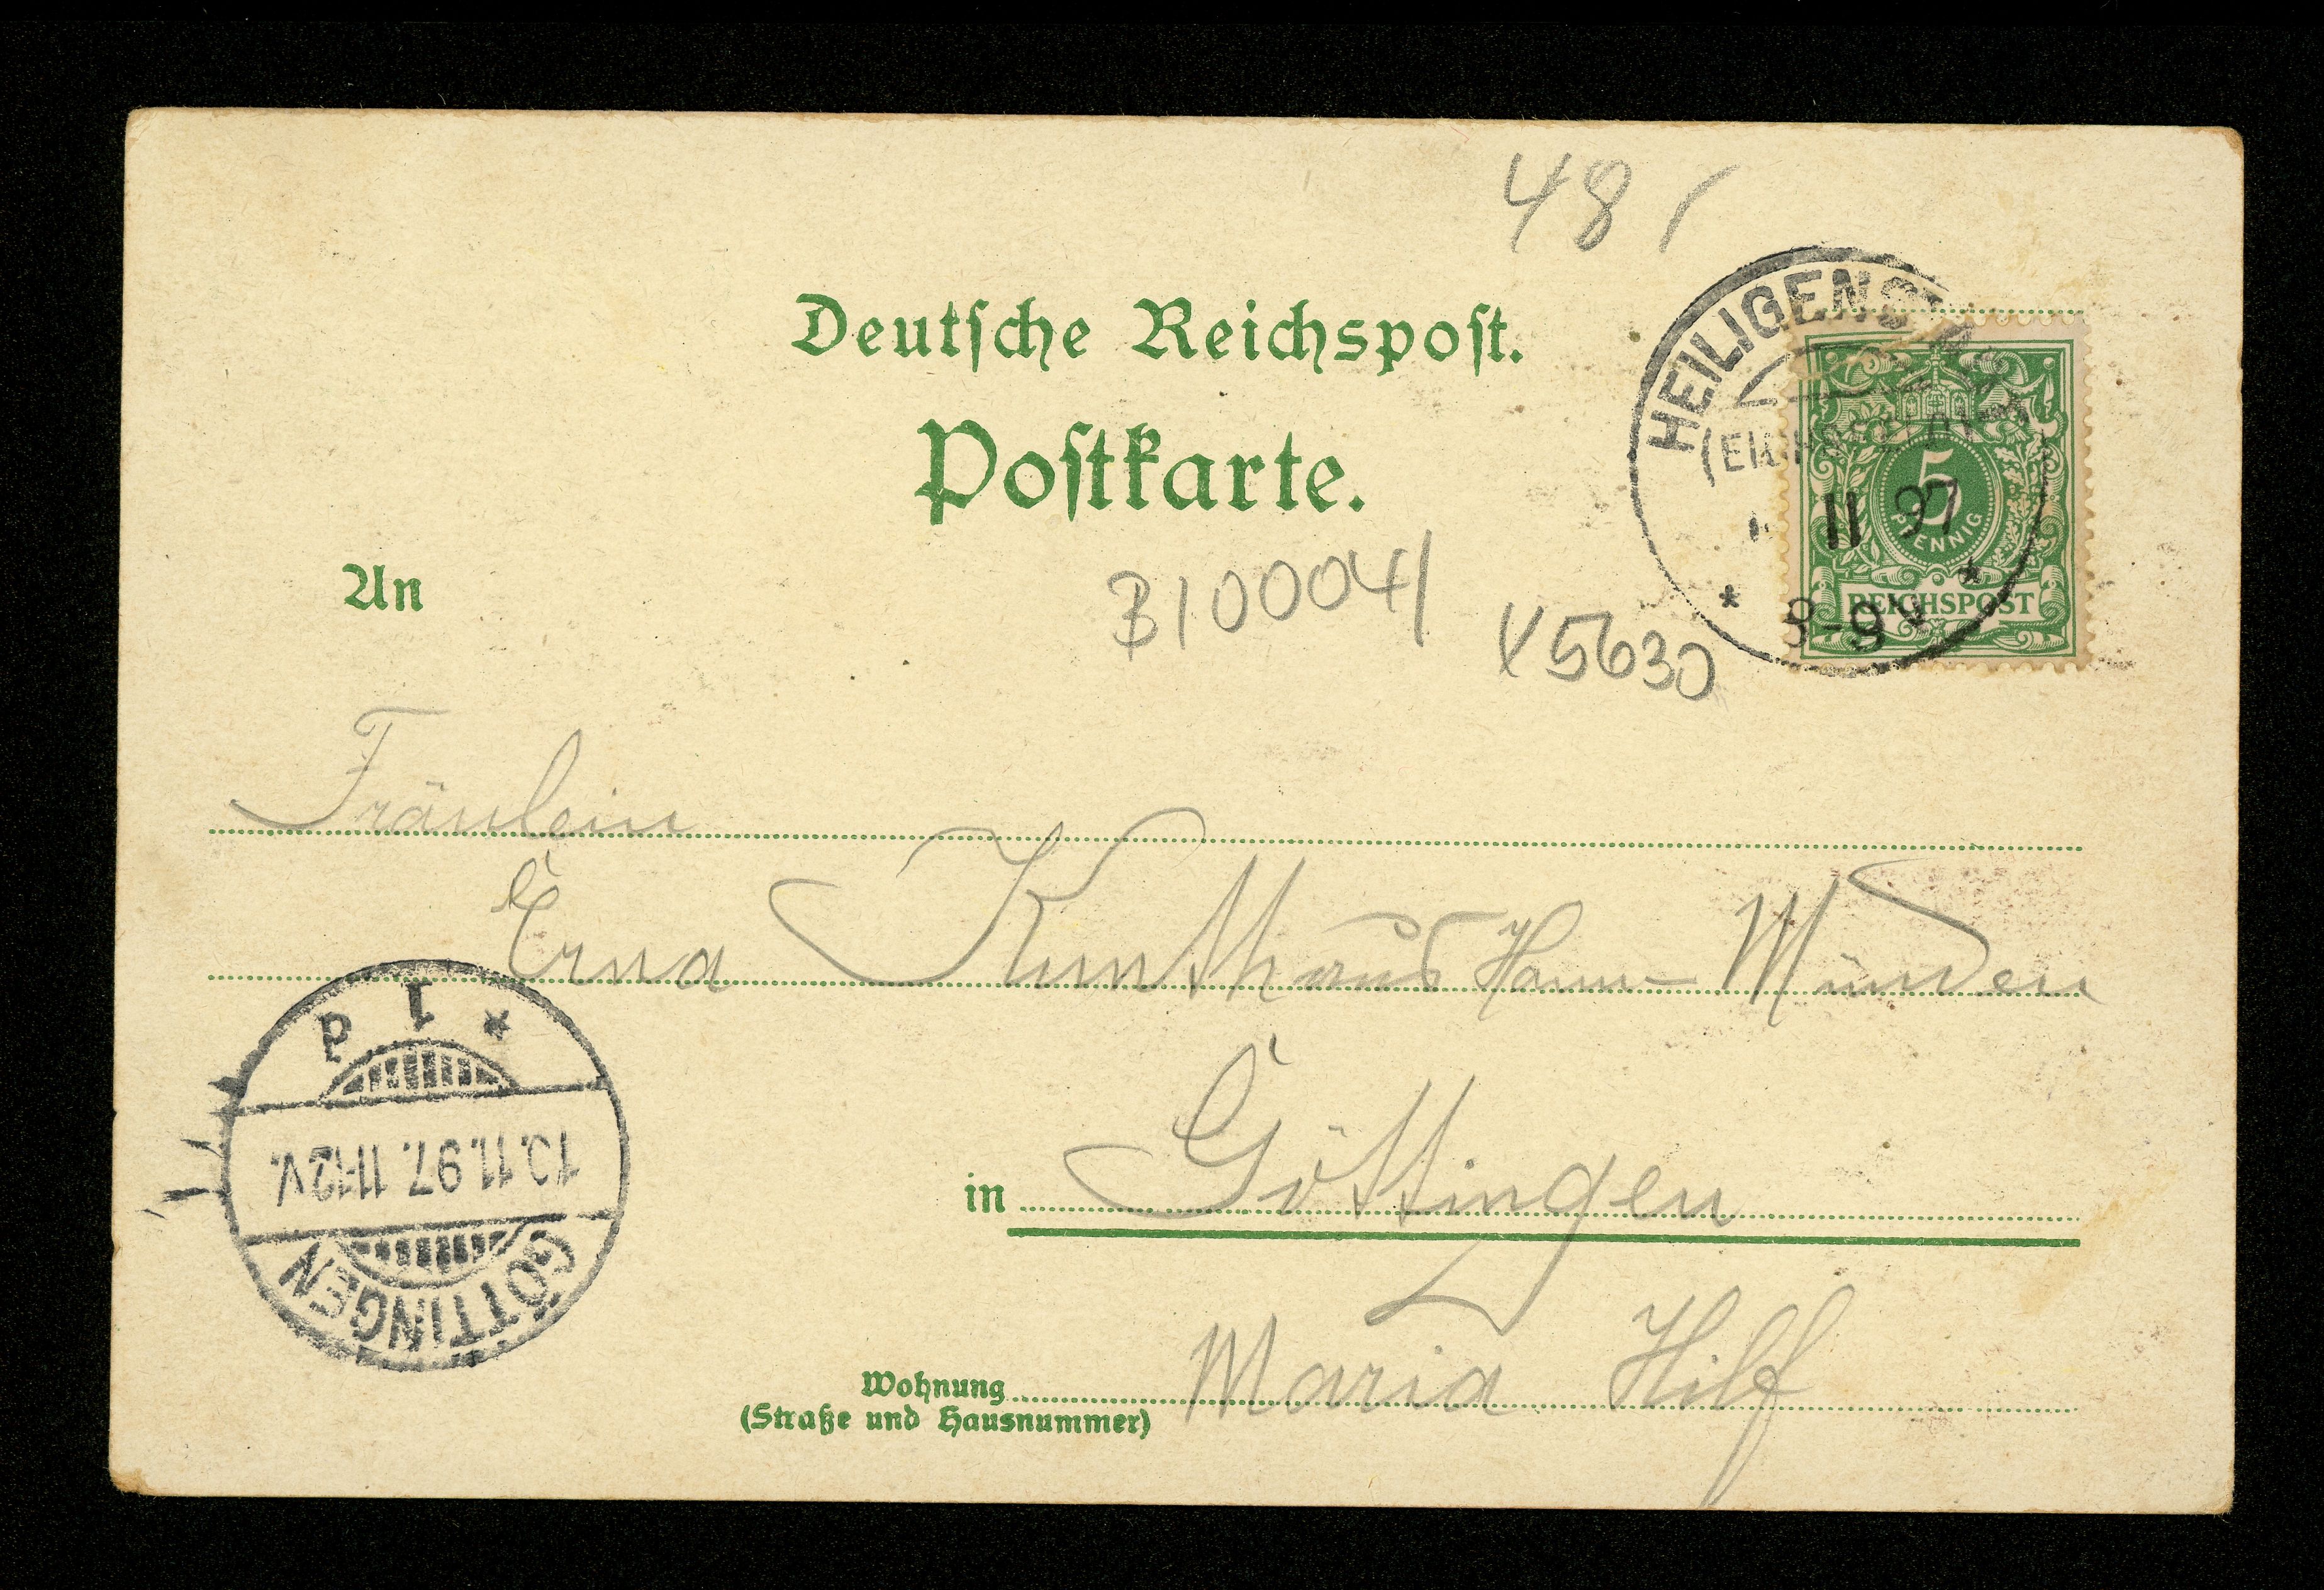 48
Deutsche Reichspost.
Postkarte.
HEILIGENSTADT
(EICHSFELD)
11 97
* 8-9 V *
5
PFENNIG
REICHSPOST
An
B10004/
X5630
Fräulein
Erna Kunthaus Hann-Münden
* 1 d
10.11.97. 11-12V.
GÖTTINGEN
in Göttingen
Wohnung Maria Hilf
(Straße und Hausnummer)